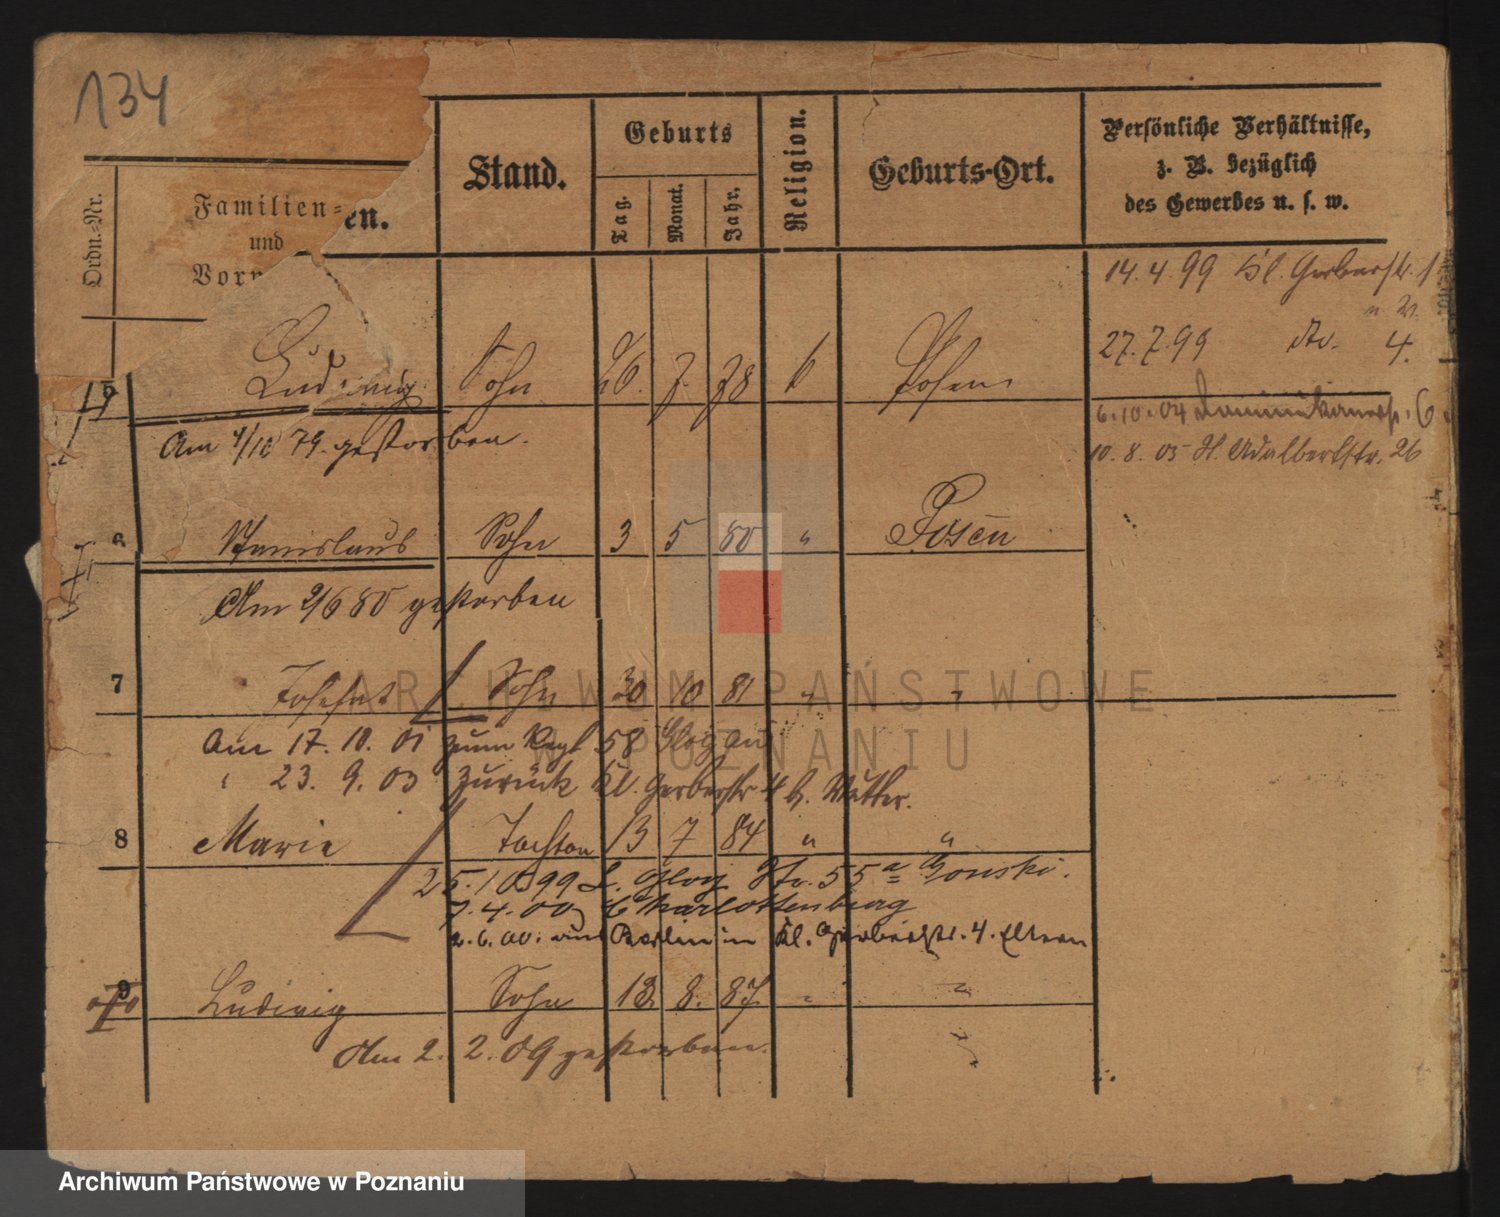 134
Ordn.-Nr.
Familien-
und
Vorn
en.
Stand.
Geburts
Tag.
Monat.
Jahr.
Religion.
Geburts-Ort.
Persönliche Verhältnisse,
z. B. bezüglich
des Gewerbes u. s. w.
14.4.99 Kl. Gerberstr.
27.7.99 4.
5 Ludwig Sohn 26. 7. 78 k Posen
6.10.04 Dominikanerstr. 6
Am 4/10 79. gestorben.
10.8.05 H. Adalbertstr. 26
6 Stanislaus Sohn 3 5 80 " Posen
Am 2/6 80 gestorben
7 Josefat Sohn 30 10 81 " "
Am 17. 10. 01 zum Regt 58 Glogau
" 23. 9. 03 zurück Kl. Gerberstr 4 b. Mutter.
8 Marie Tochter 13 7 84 " "
25.10.99 Glog Str. 55a Gonski.
7.4.00 Charlottenburg
2.6.00. aus Berlin in Kl. Gerberstr. 4. Eltern
9 Ludwig Sohn 13. 8. 87. " "
Am 2. 2. 09 gestorben.
ARCHIWUM PAŃSTWOWE
W POZNANIU
Archiwum Państwowe w Poznaniu